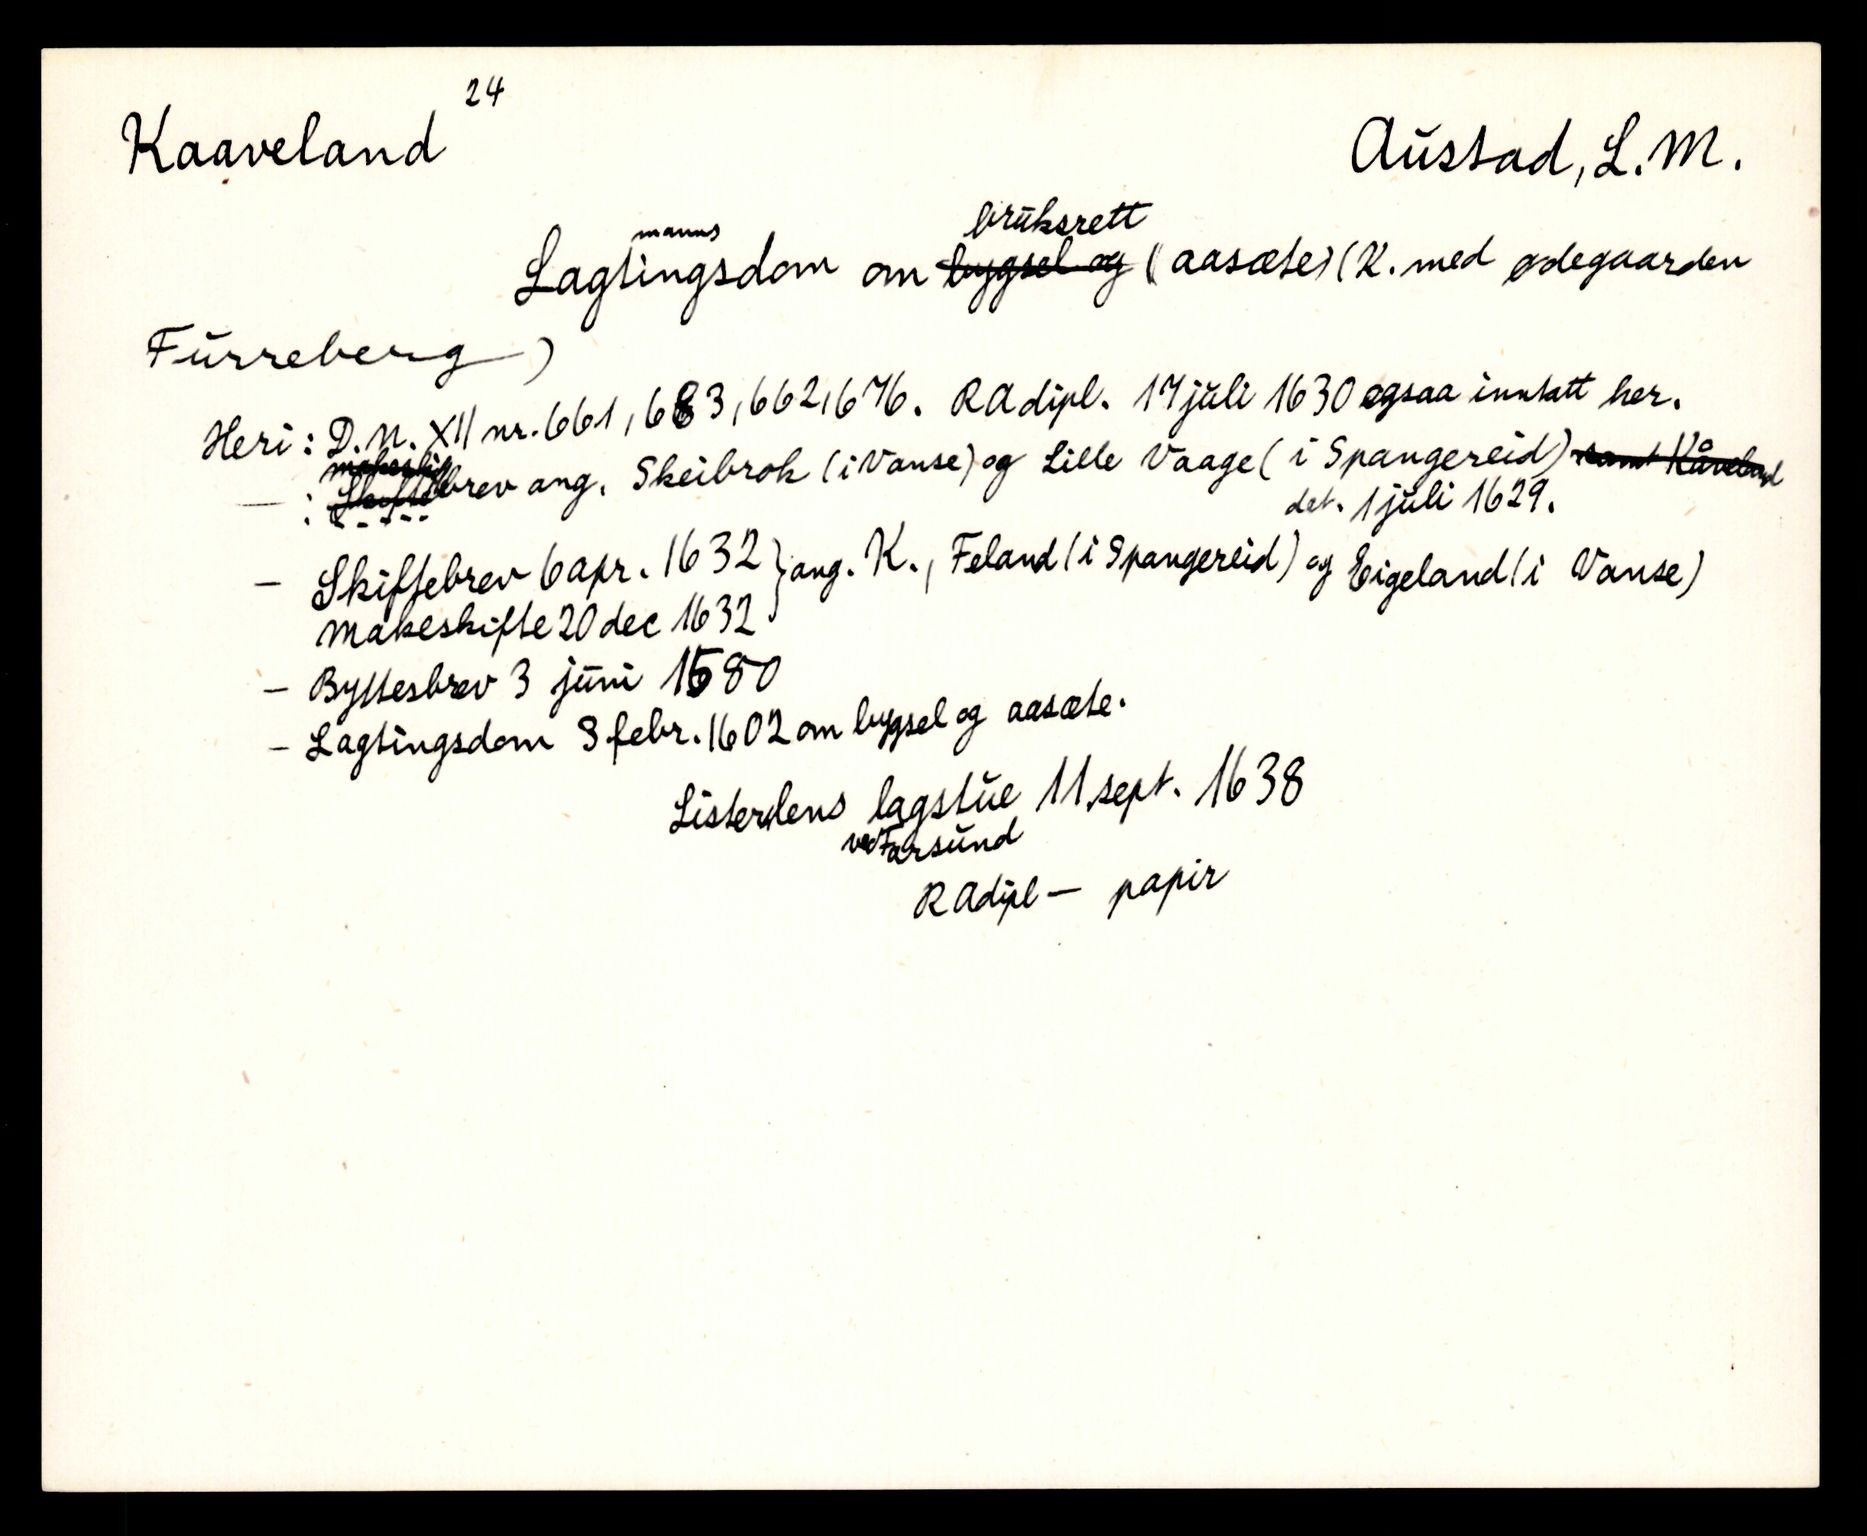 24
Kaaveland
Austad, L. M.
manns bruksrett
Lagtingsdom om bygsel og (aasæte) (K. med ødegaarden
Furreberg)
Heri: D.N. XII nr. 661, 683, 662, 676. RA dipl. 17 juli 1630 ogsaa inntatt her.
makeskif
— : Skiftebrev ang. Skeibrok (i Vanse) og Lille Vaage (i Spangereid) samt Kåveland
dat. 1 juli 1629.
— Skiftebrev 6 apr. 1632 } ang. K., Feland (i Spangereid) og Eigeland (i Vanse)
Makeskifte 20 dec 1632
— Byttesbrev 3 juni 1580
— Lagtingsdom 3 febr. 1602 om bygsel og aasæte.
Listerlens lagstue 11 sept. 1638
ved Farsund
RA dipl — papir